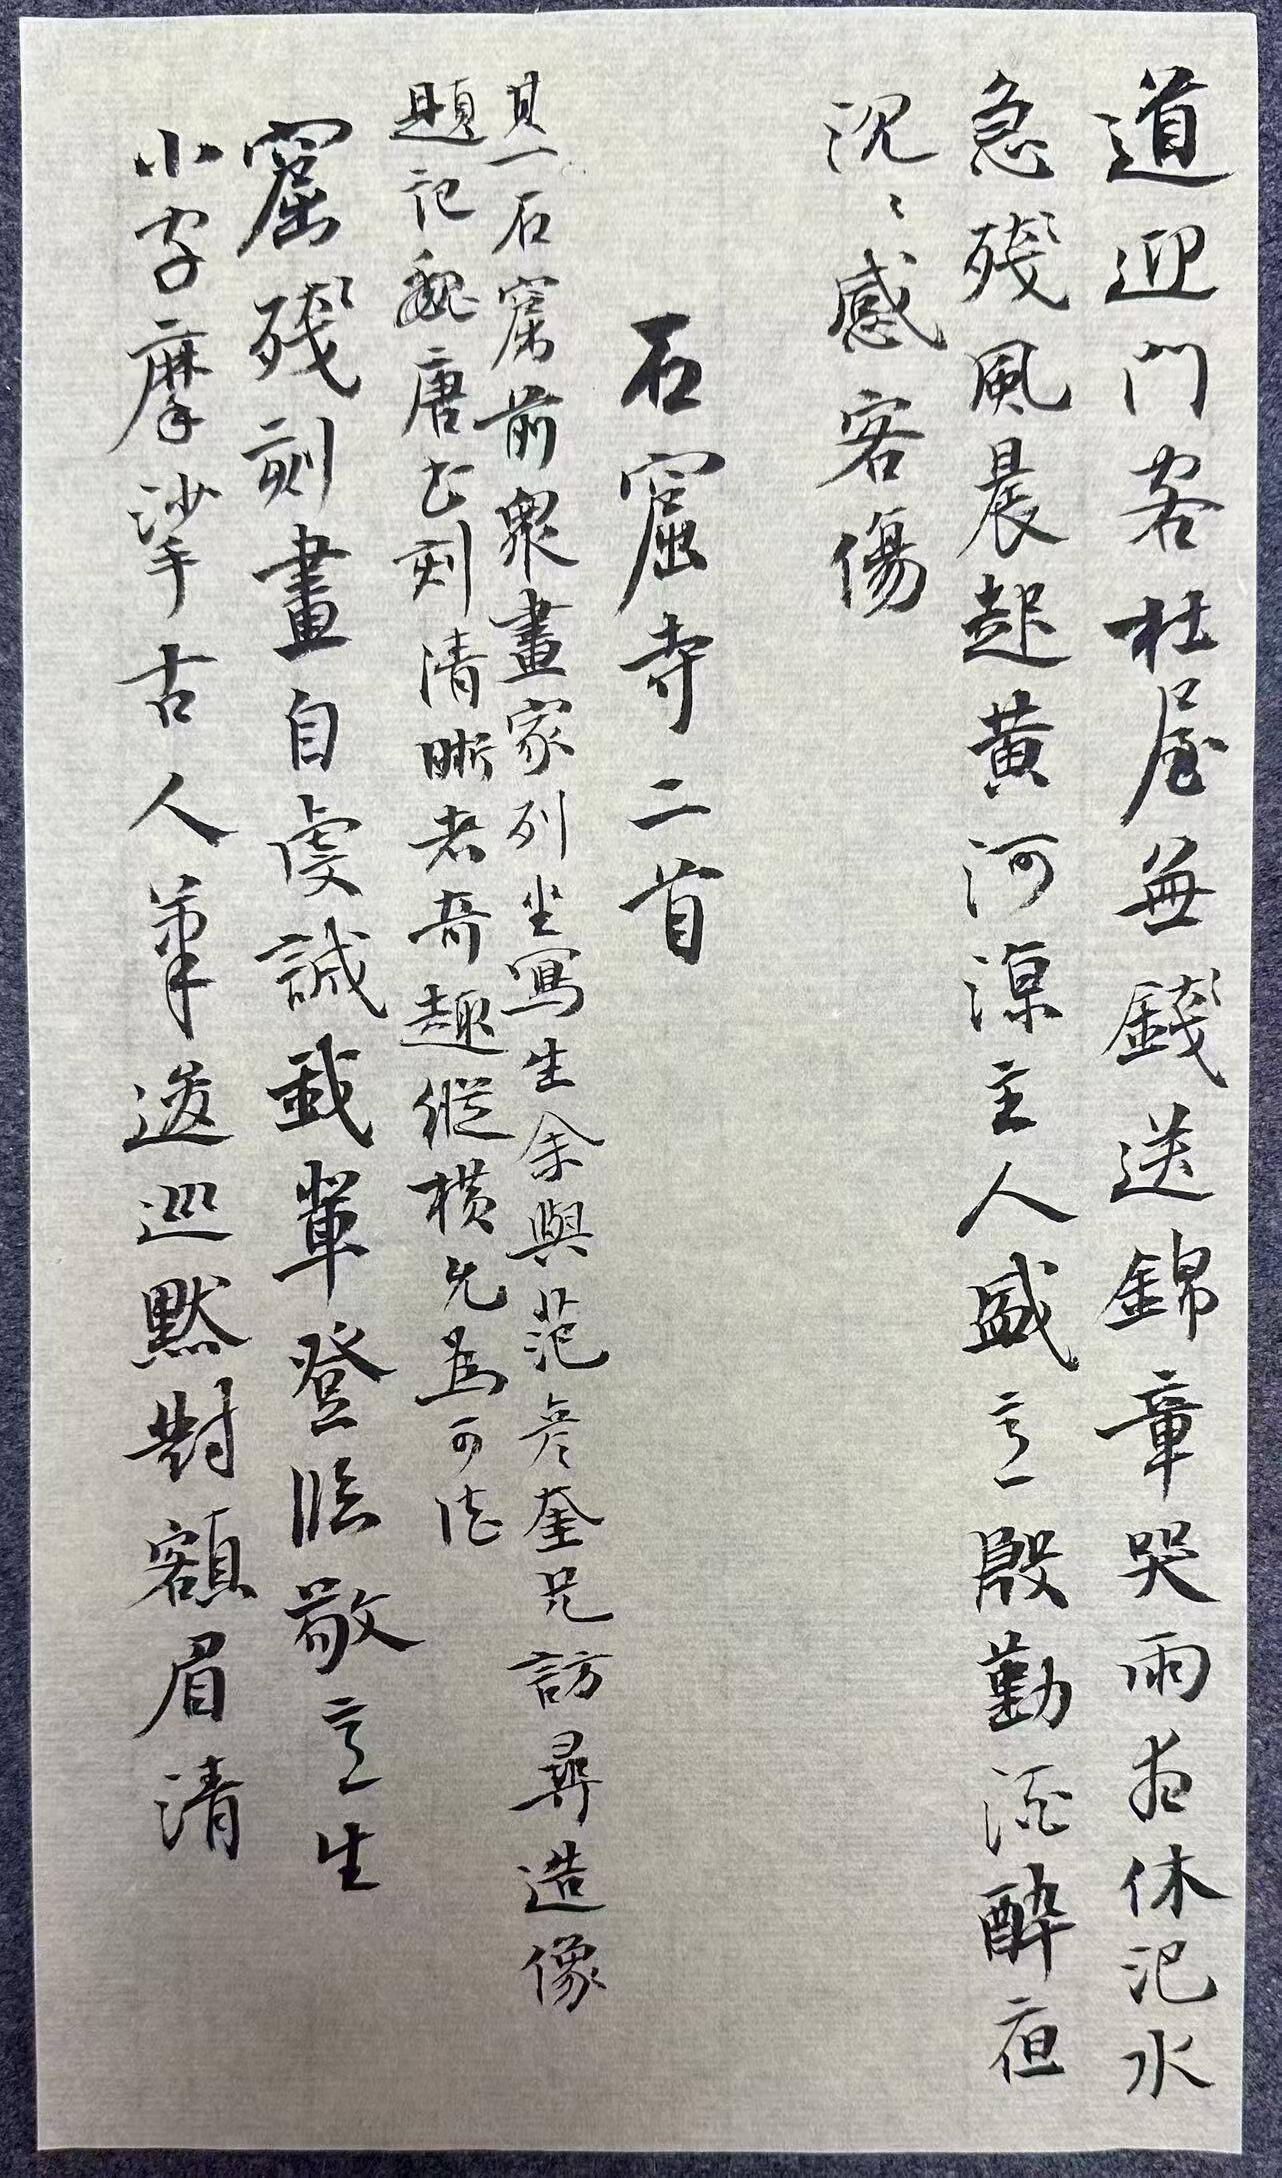 道迎門客杜屋無錢送錦章哭雨夜休汜水
急殘風晨起黃河涼主人盛意殷勤酒醉夜
沉〻感客傷
石窟寺二首
其一石窟前眾畫家列坐寫生余與范彥奎兄訪尋造像
題記魏唐書刻清晰者奇趣縱橫尤為可信
窟殘刻畫自虔誠我輩登臨敬意生
小字摩挲古人筆逡巡默對額眉清